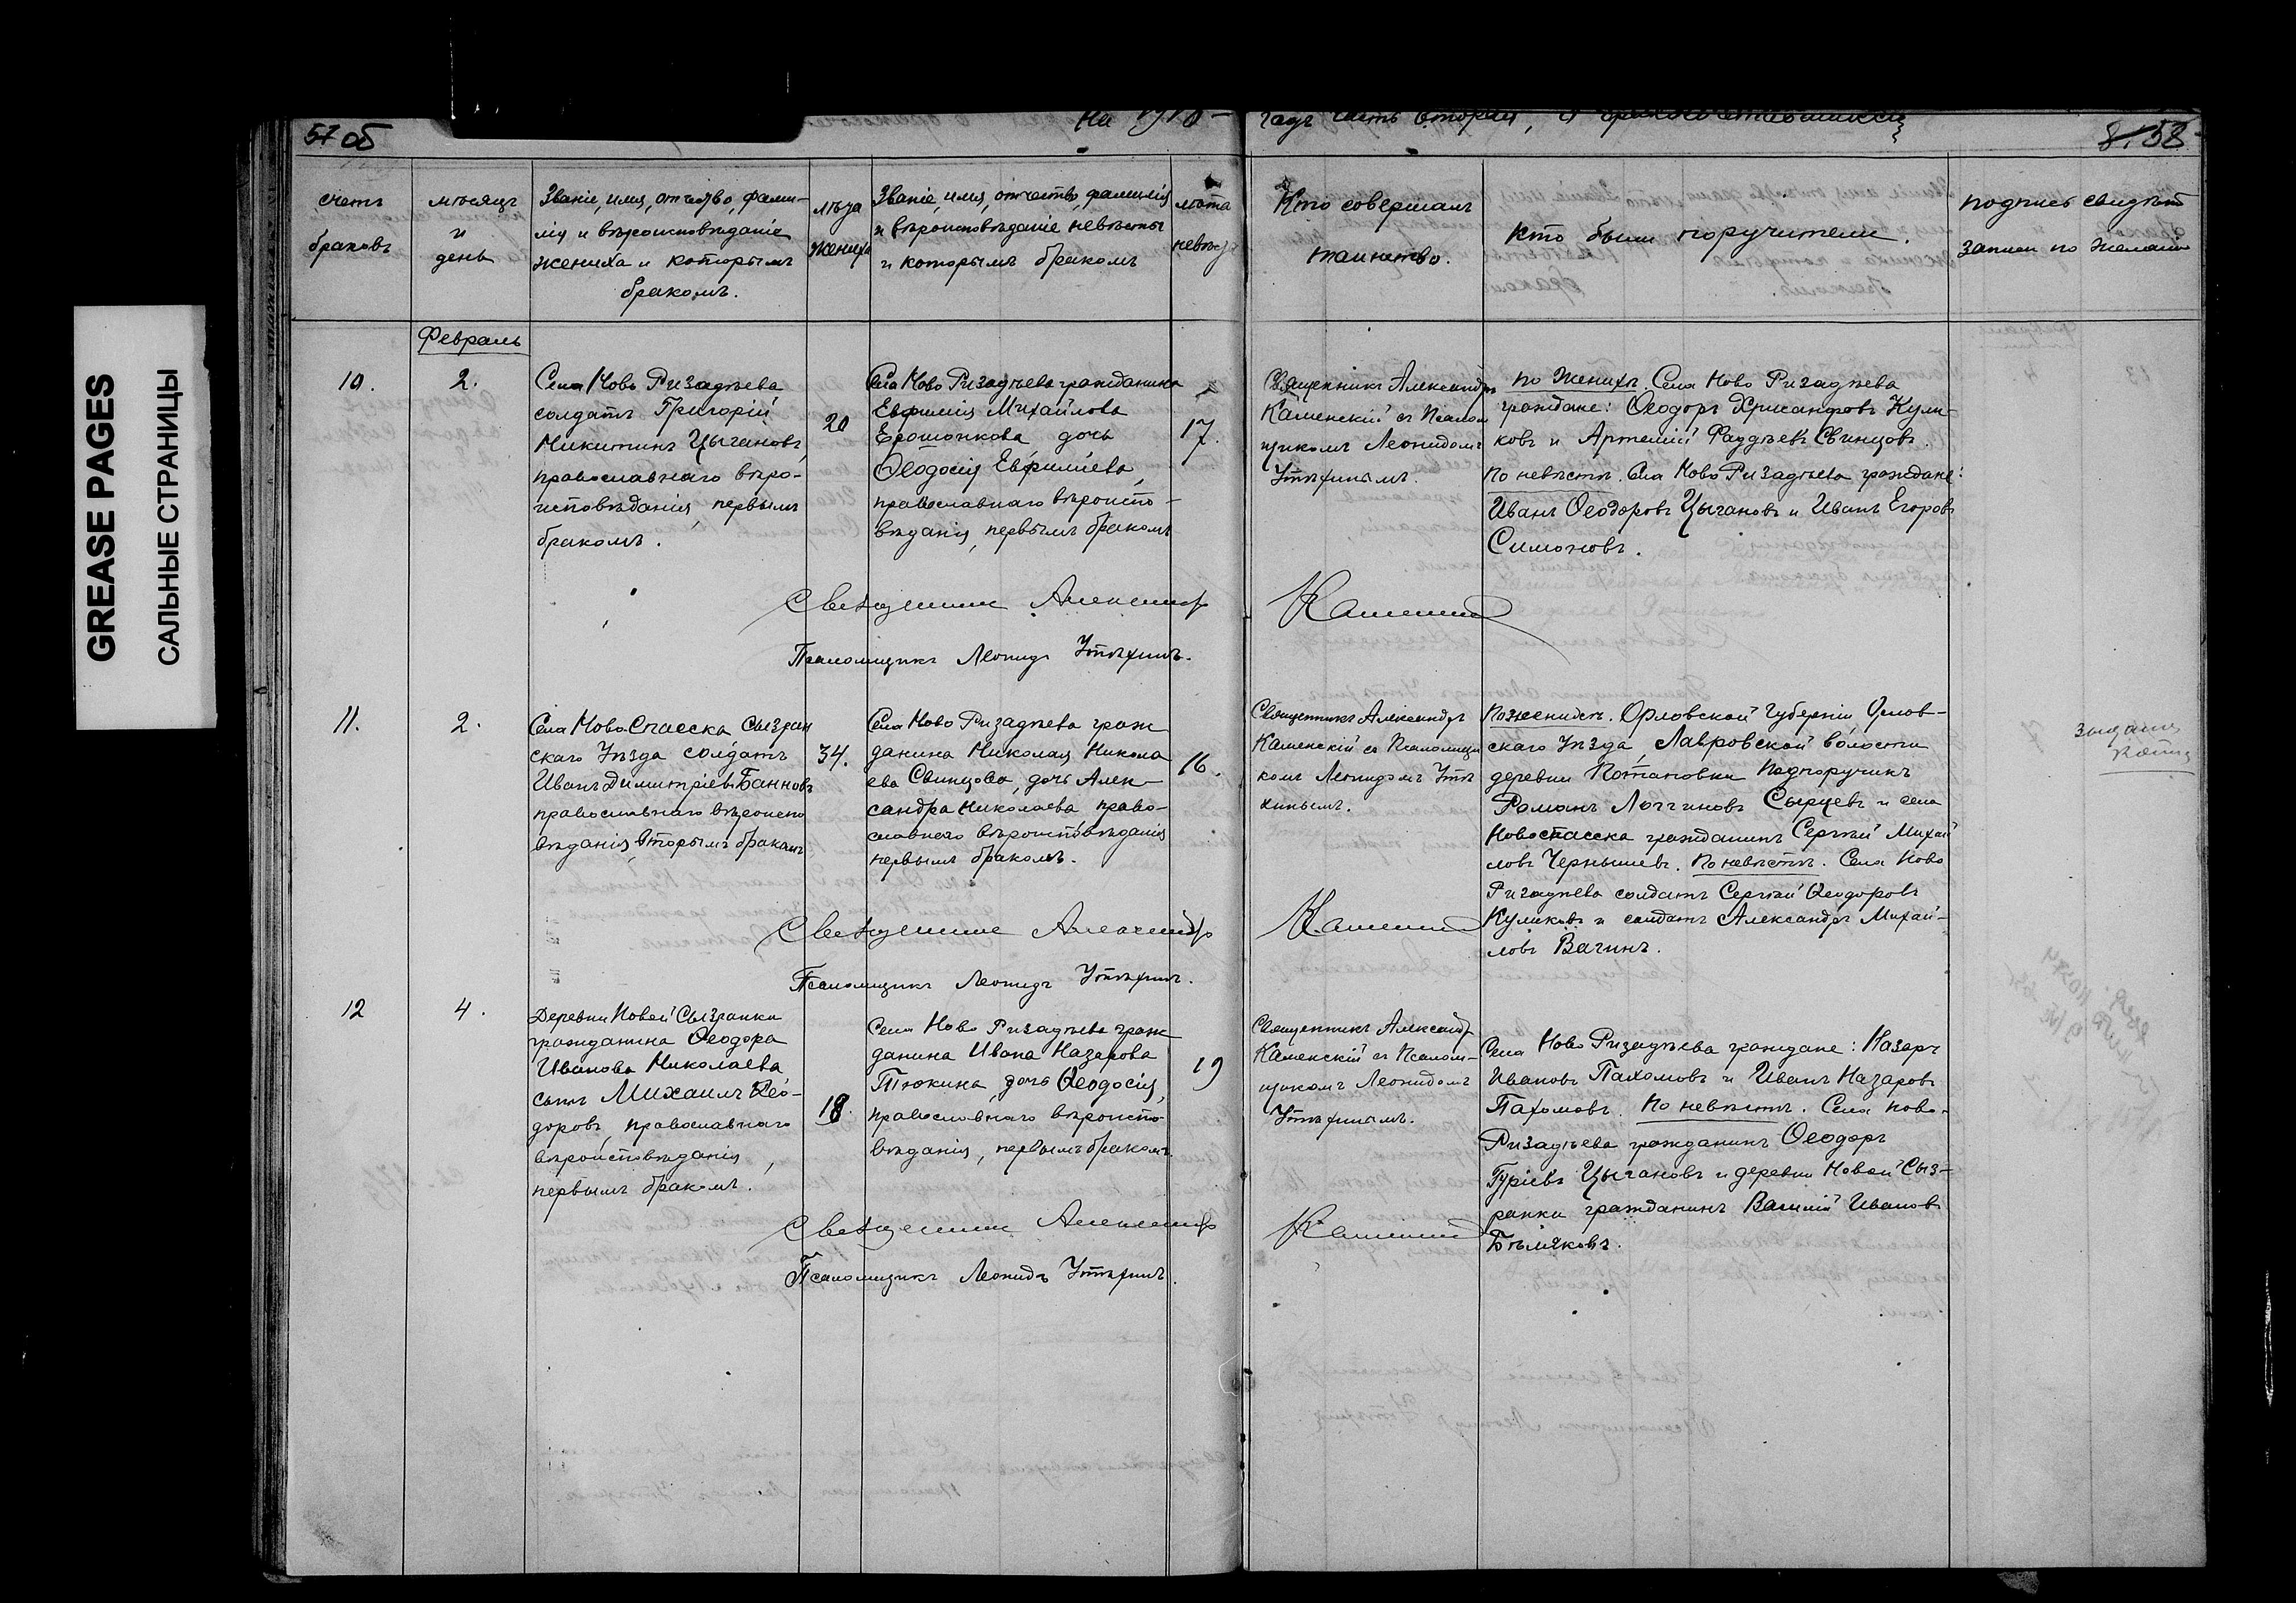 GREASE PAGES
САЛЬНЫЕ СТРАНИЦЫ
57 об
На 1918 –
годъ часть вторая, о бракосочетавшихся
8. 58
счетъ
браковъ
мѣсяцъ
и
день
Званіе, имя, отчество, фами-
лія и вѣроисповѣданіе
жениха и которымъ
бракомъ.
лѣта
жениха
Званіе, имя, отчество, фамилія
и вѣроисповѣданіе невѣсты
и которымъ бракомъ
лѣта
невѣсты
Кто совершалъ
таинство.
Кто были поручители.
подпись свидѣт
записи по желанію
Февраль
10.
2.
Села Ново Ризадѣева
солдатъ Григорій
Никитинъ Цыгановъ,
православнаго вѣро-
исповѣданія, первымъ
бракомъ.
20
Села Ново Ризадѣева гражданина
Евфимія Михайлова
Ерошочкова дочь
Ѳеодосія Евфиміева,
православнаго вѣроиспо-
вѣданія, первымъ бракомъ
17.
Священникъ Александръ
Каменскій съ Псалом
щикомъ Леонидомъ
Утѣхинымъ.
По женихѣ. Села Ново Ризадѣева
граждане: Ѳеодоръ Хрисанфовъ Кули-
ковъ и Артемій Фаддѣевъ Свинцовъ.
По невѣстѣ. Села Ново Ризадѣева граждане:
Иванъ Ѳеодоровъ Цыгановъ и Иванъ Егоровъ
Симоновъ.
Священникъ Александръ
Каменскій
Псаломщикъ Леонидъ Утѣхинъ.
11.
2.
Села НовоСпасска Сызран
скаго Уѣзда солдатъ
Иванъ Димитріевъ Банновъ
православнаго вѣроиспо
вѣданія, вторымъ бракомъ
34.
Села Ново Ризадѣева граж
данина Николая Никола
ева Свинцова, дочь Алек-
сандра Николаева право-
славнаго вѣроисповѣданія
первымъ бракомъ.
16.
Священникъ Александръ
Каменскій съ Псаломщи
комъ Леонидомъ Утѣ
хинымъ.
По женихѣ. Орловской Губерніи Орлов-
скаго Уѣзда, Лавровской волости
деревни Потановки Подпоручикъ
Романъ Логгиновъ Сырцевъ и села
Новоспасска гражданинъ Сергѣй Михай
ловъ Чернышевъ. По невѣстѣ. Села Ново
Ризадѣева солдатъ Сергѣй Ѳеодоровъ
Куликовъ и солдатъ Александръ Михай-
ловъ Вагинъ.
Священникъ Александръ
Каменскій
Псаломщикъ Леонидъ Утѣхинъ.
12
4.
Деревни Новой Сызранки
гражданина Ѳеодора
Иванова Николаева
сынъ Михаилъ Ѳео-
доровъ, православнаго
вѣроисповѣданія,
первымъ бракомъ.
18.
Села Ново Ризадѣева граж
данина Ивана Назарова
Тюкина, дочь Ѳеодосія,
православнаго вѣроиспо-
вѣданія, первымъ бракомъ.
19
Священникъ Александръ
Каменскій съ Псалом-
щикомъ Леонидомъ
Утѣхинымъ.
Села Ново Ризадѣева граждане: Назаръ
Ивановъ Пахомовъ и Иванъ Назаровъ
Пахомовъ. По невѣстѣ. Села Ново-
Ризадѣева гражданинъ Ѳеодоръ
Гурiевъ Цыгановъ и деревни Новой Сыз-
ранки гражданинъ Василій Ивановъ
Бѣляковъ.
Священникъ Александръ
Каменскій
Псаломщикъ Леонидъ Утѣхинъ.